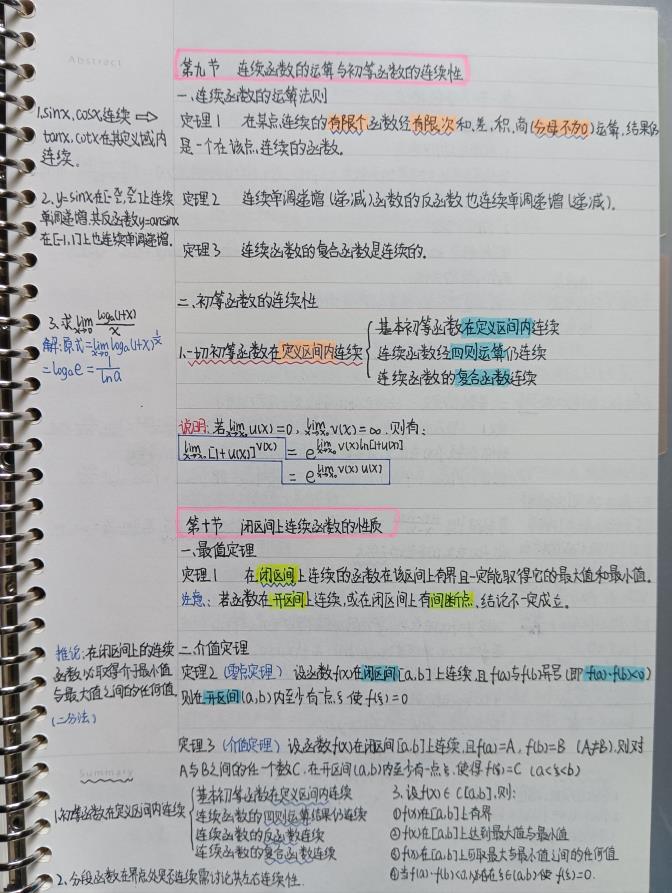 Abstract
第九节 连续函数的运算与初等函数的连续性
一、连续函数的运算法则
定理1 在某点连续的有限个函数经有限次和、差、积、商(分母不为0)运算,结果仍
是一个在该点连续的函数。
1.sinx,cosx连续 ⇒
tanx,cotx在其定义域内
连续。
定理2 连续单调递增(递减)函数的反函数也连续单调递增(递减)。
2.y=sinx在[-π/2,π/2]上连续
单调递增,其反函数y=arcsinx
在[-1,1]上也连续单调递增。
定理3 连续函数的复合函数是连续的。
二、初等函数的连续性
1.一切初等函数在定义区间内连续
基本初等函数在定义区间内连续
连续函数经四则运算仍连续
连续函数的复合函数连续
3.求lim x→0 loga(1+x)/x
解:原式=lim x→0 loga(1+x)^(1/x)
=logae=1/lna
说明:若lim x→x₀ u(x)=0, lim x→x₀ v(x)=∞,则有:
lim x→x₀ [1+u(x)]^v(x) = e^(lim x→x₀ v(x)ln[1+u(x)])
= e^(lim x→x₀ v(x)u(x))
第十节 闭区间上连续函数的性质
一、最值定理
定理1 在闭区间上连续的函数在该区间上有界且一定能取得它的最大值和最小值。
注意:若函数在开区间上连续,或在闭区间上有间断点,结论不一定成立。
二、介值定理
定理2(零点定理) 设函数f(x)在闭区间[a,b]上连续,且f(a)与f(b)异号(即f(a)·f(b)<0)
则在开区间(a,b)内至少有一点ξ使f(ξ)=0
推论:在闭区间上的连续
函数必取得介于最小值
与最大值之间的任何值
(二分法)
定理3(介值定理) 设函数f(x)在闭区间[a,b]上连续,且f(a)=A,f(b)=B (A≠B),则对
A与B之间的任一个数C,在开区间(a,b)内至少有一点ξ,使得f(ξ)=C (a<ξ<b)
Summary
1.初等函数在定义区间内连续
基本初等函数在定义区间内连续
连续函数的四则运算结果仍连续
连续函数的反函数连续
连续函数的复合函数连续
2.分段函数在界点处是否连续需讨论其左右连续性.
3.设f(x)∈C[a,b],则:
①f(x)在[a,b]上有界
②f(x)在[a,b]上达到最大值与最小值
③f(x)在[a,b]上可取最大与最小值之间的任何值
④当f(a)·f(b)<0时,必存在ξ∈(a,b)使f(ξ)=0.